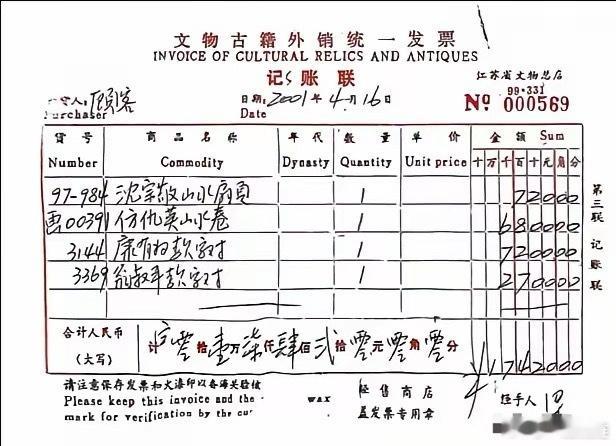 文物古籍外销统一发票
INVOICE OF CULTURAL RELICS AND ANTIQUES
记账联
江苏省文物总店
99·331
№ 000569
人: 顾客
Purchaser
日期: 2001年4月16
Date
货号 商品名称 年代 数量 单价 金额 Sum
Number Commodity Dynasty Quantity Unit price 十万千百十元角分
97-984 沈宗敬山水扇页 1 72000
00391 仿仇英山水卷 1 680000
3144 康有为款字对 1 720000
3369 翁叔平款字对 1 270000
合计人民币
(大写)
计 零拾壹万柒仟肆佰弍拾零元零角零分 ¥1742000
第三联 记账联
请注意保存发票和火漆印以备海关验核
Please keep this invoice and the wax
mark for verification by the cu
经售商店
盖发票专用章
经手人